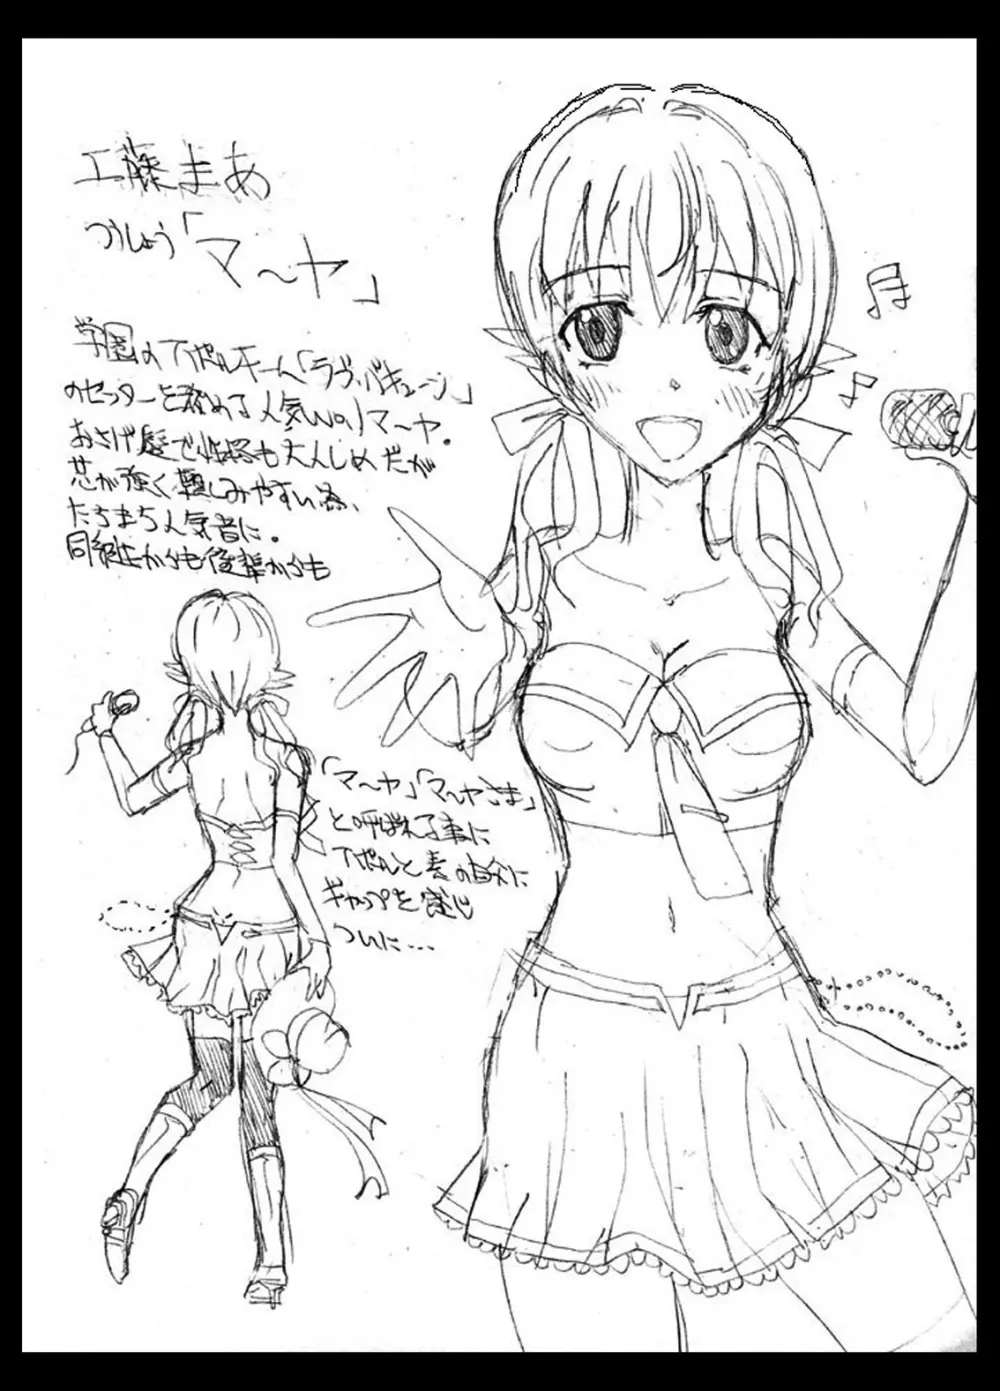 工藤まあ
つうしょう「マ〜ヤ」
学園のアイドルチーム「ラヴ・バキューン」
のセンターを務める人気No.1マ〜ヤ。
おさげ髪で性格も大人しめだが
芯が強く親しみやすい為、
たちまち人気者に。
同級生からも後輩からも
「マ〜ヤ」「マ〜ヤさま」
と呼ばれる事に
アイドルと素の自分に
ギャップを感じ
ついに…